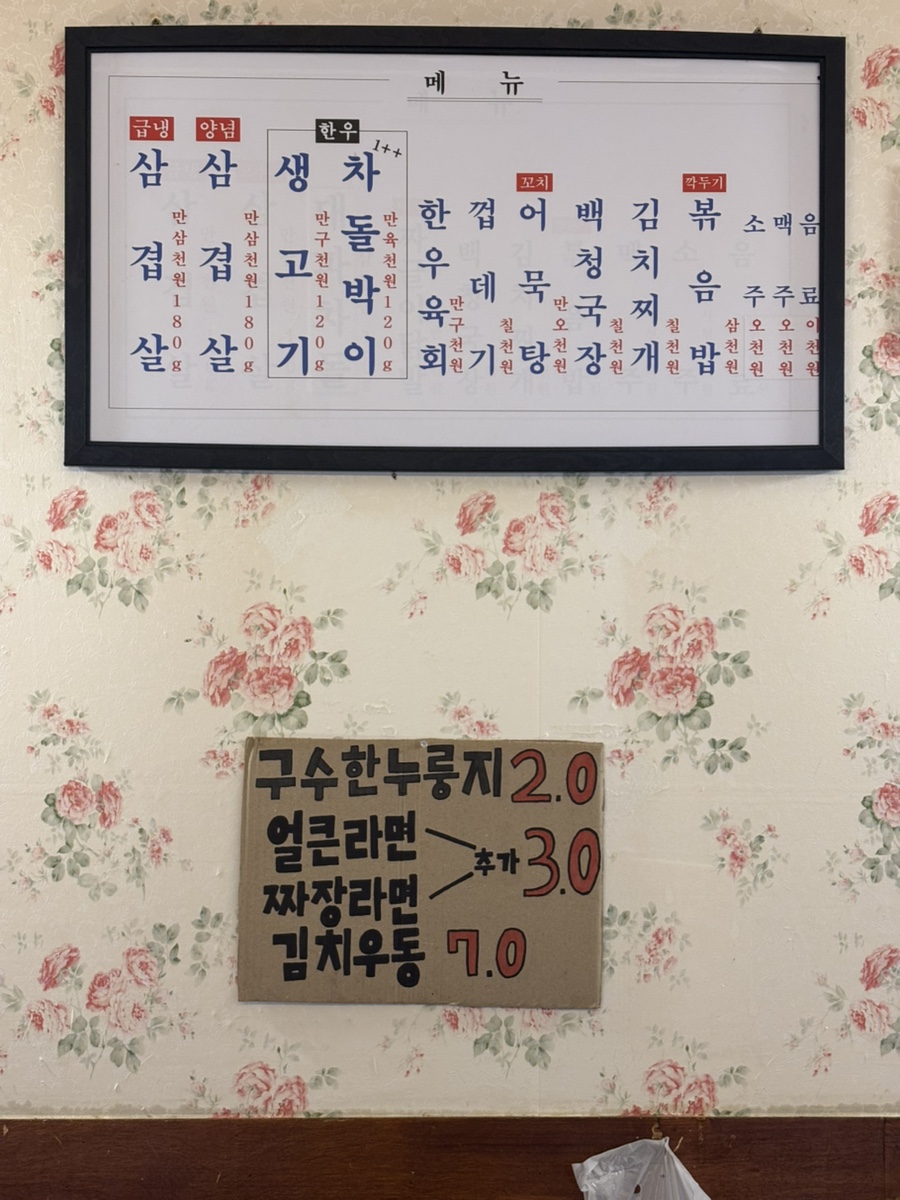 메 뉴
급냉
삼겹살
만삼천원180g
양념
삼겹살
만삼천원180g
한우
생고기
만구천원120g
차돌박이
1++
만육천원120g
한우육회
만구천원
껍데기
칠천원
꼬치
어묵탕
만오천원
백청국장
칠천원
김치찌개
칠천원
깍두기
볶음밥
삼천원
소주
오천원
맥주
오천원
음료
이천원
구수한누룽지 2.0
얼큰라면
짜장라면
추가 3.0
김치우동 7.0